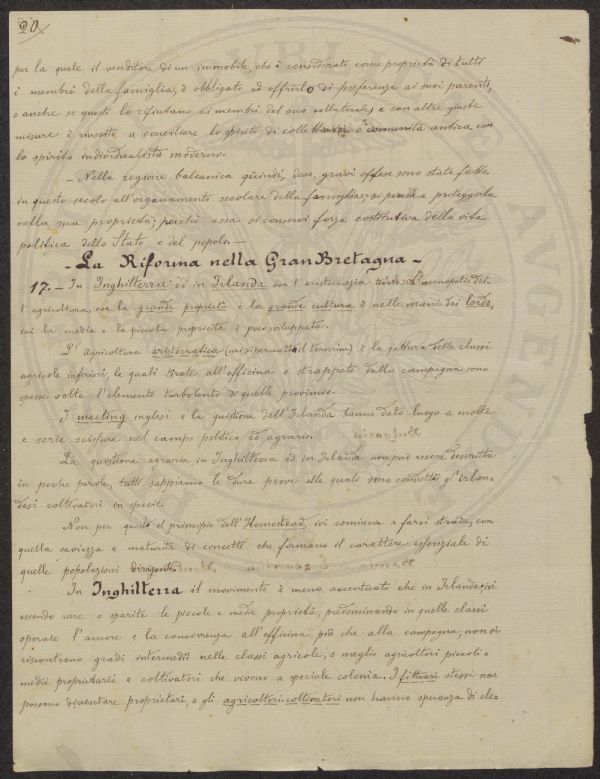 20
per la quale il venditore di un immobile, che è considerato come proprietà di tutti
i membri della famiglia, è obbligato ad offrirlo di preferenza ai suoi parenti,
o anche se questi lo rifiutano ai membri del suo collaterale, e con altre giuste
misure è riuscita a conciliare lo spirito di comunità antica, con
lo spirito individualista moderno.
- Nella regione balcanica quindi, dove gravi offese sono state fatte
in questo secolo all'organamento secolare della famiglia, si pensa a proteggerla
nella sua proprietà; perchè essa si conservi forza costitutiva della vita
politica dello Stato e del popolo. -
- La Riforma nella Gran Bretagna -
17. - In Inghilterra ed in Irlanda ove l'aristocrazia tiene il monopolio del-
l'agricoltura, ove la grande proprietà e la grande cultura è nelle mani dei lords,
ivi la media e la piccola proprietà è poco sviluppata.
L'agricoltura aristocratica (mi si permetta il termine) è la jattura delle classi
agricole inferiori, le quali tirate all'officina e strappate dalla campagna sono
spesse volte l'elemento turbolento di quelle provincie.
I meeting inglesi e la quistione dell'Irlanda hanno dato luogo a molte
e serie scissure nel campo politico ed agrario.
La quistione agraria in Inghilterra ed in Irlanda non può essere descritta
in poche parole, tutti sappiamo le dure prove alle quali sono condotti gl'Irlan-
desi coltivatori in specie.
Non per questo il principio dell'Homestead, ivi comincia a farsi strada, con
quella saviezza e maturità di concetti che formano il carattere essenziale di
quelle popolazioni dirigenti.
In Inghilterra il movimento è meno accentuato che in Irlanda; ivi
essendo rare o sparite le piccole e medie proprietà, predominando in quelle classi
operaie l'amore e la concorrenza all'officina, più che alla campagna, non si
riscontrano gradi intermedii nelle classi agricole, o meglio agricoltori piccoli o
medii proprietarii e coltivatori che vivono a speciale colonia. I fittuari stessi non
possono diventare proprietari, e gli agricoltori coltivatori non hanno speranza di ele-